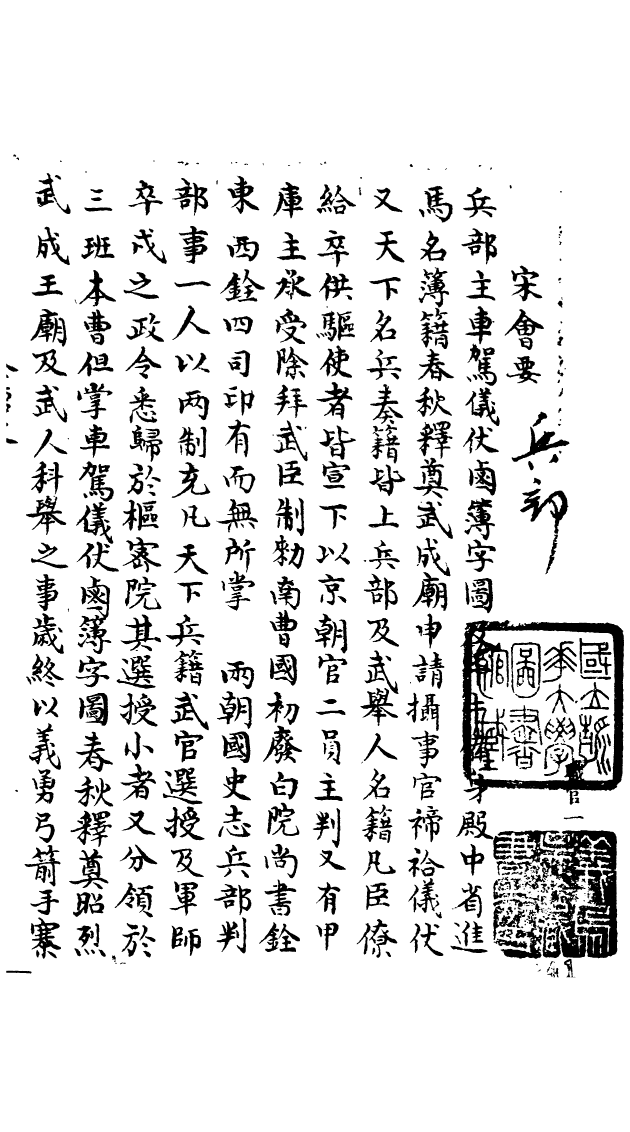 宋會要
兵部
兵部主車駕儀仗鹵簿字圖及 殿中省進
馬名簿籍春秋釋奠武成廟申請攝事官禘祫儀仗
又天下名兵奏籍皆上兵部及武舉人名籍凡臣僚
給卒供驅使者皆宣下以京朝官二員主判又有甲
庫主承受除拜武臣制勑南曹國初廢白院尚書銓
東西銓四司印有而無所掌 兩朝國史志兵部判
部事一人以两制充凡天下兵籍武官選授及軍師
卒戍之政令悉歸於樞密院其選授小者又分領於
三班本曹但掌車駕儀仗鹵簿字圖春秋釋奠昭烈
武成王廟及武人科舉之事歲終以義勇弓箭手寨
職官一